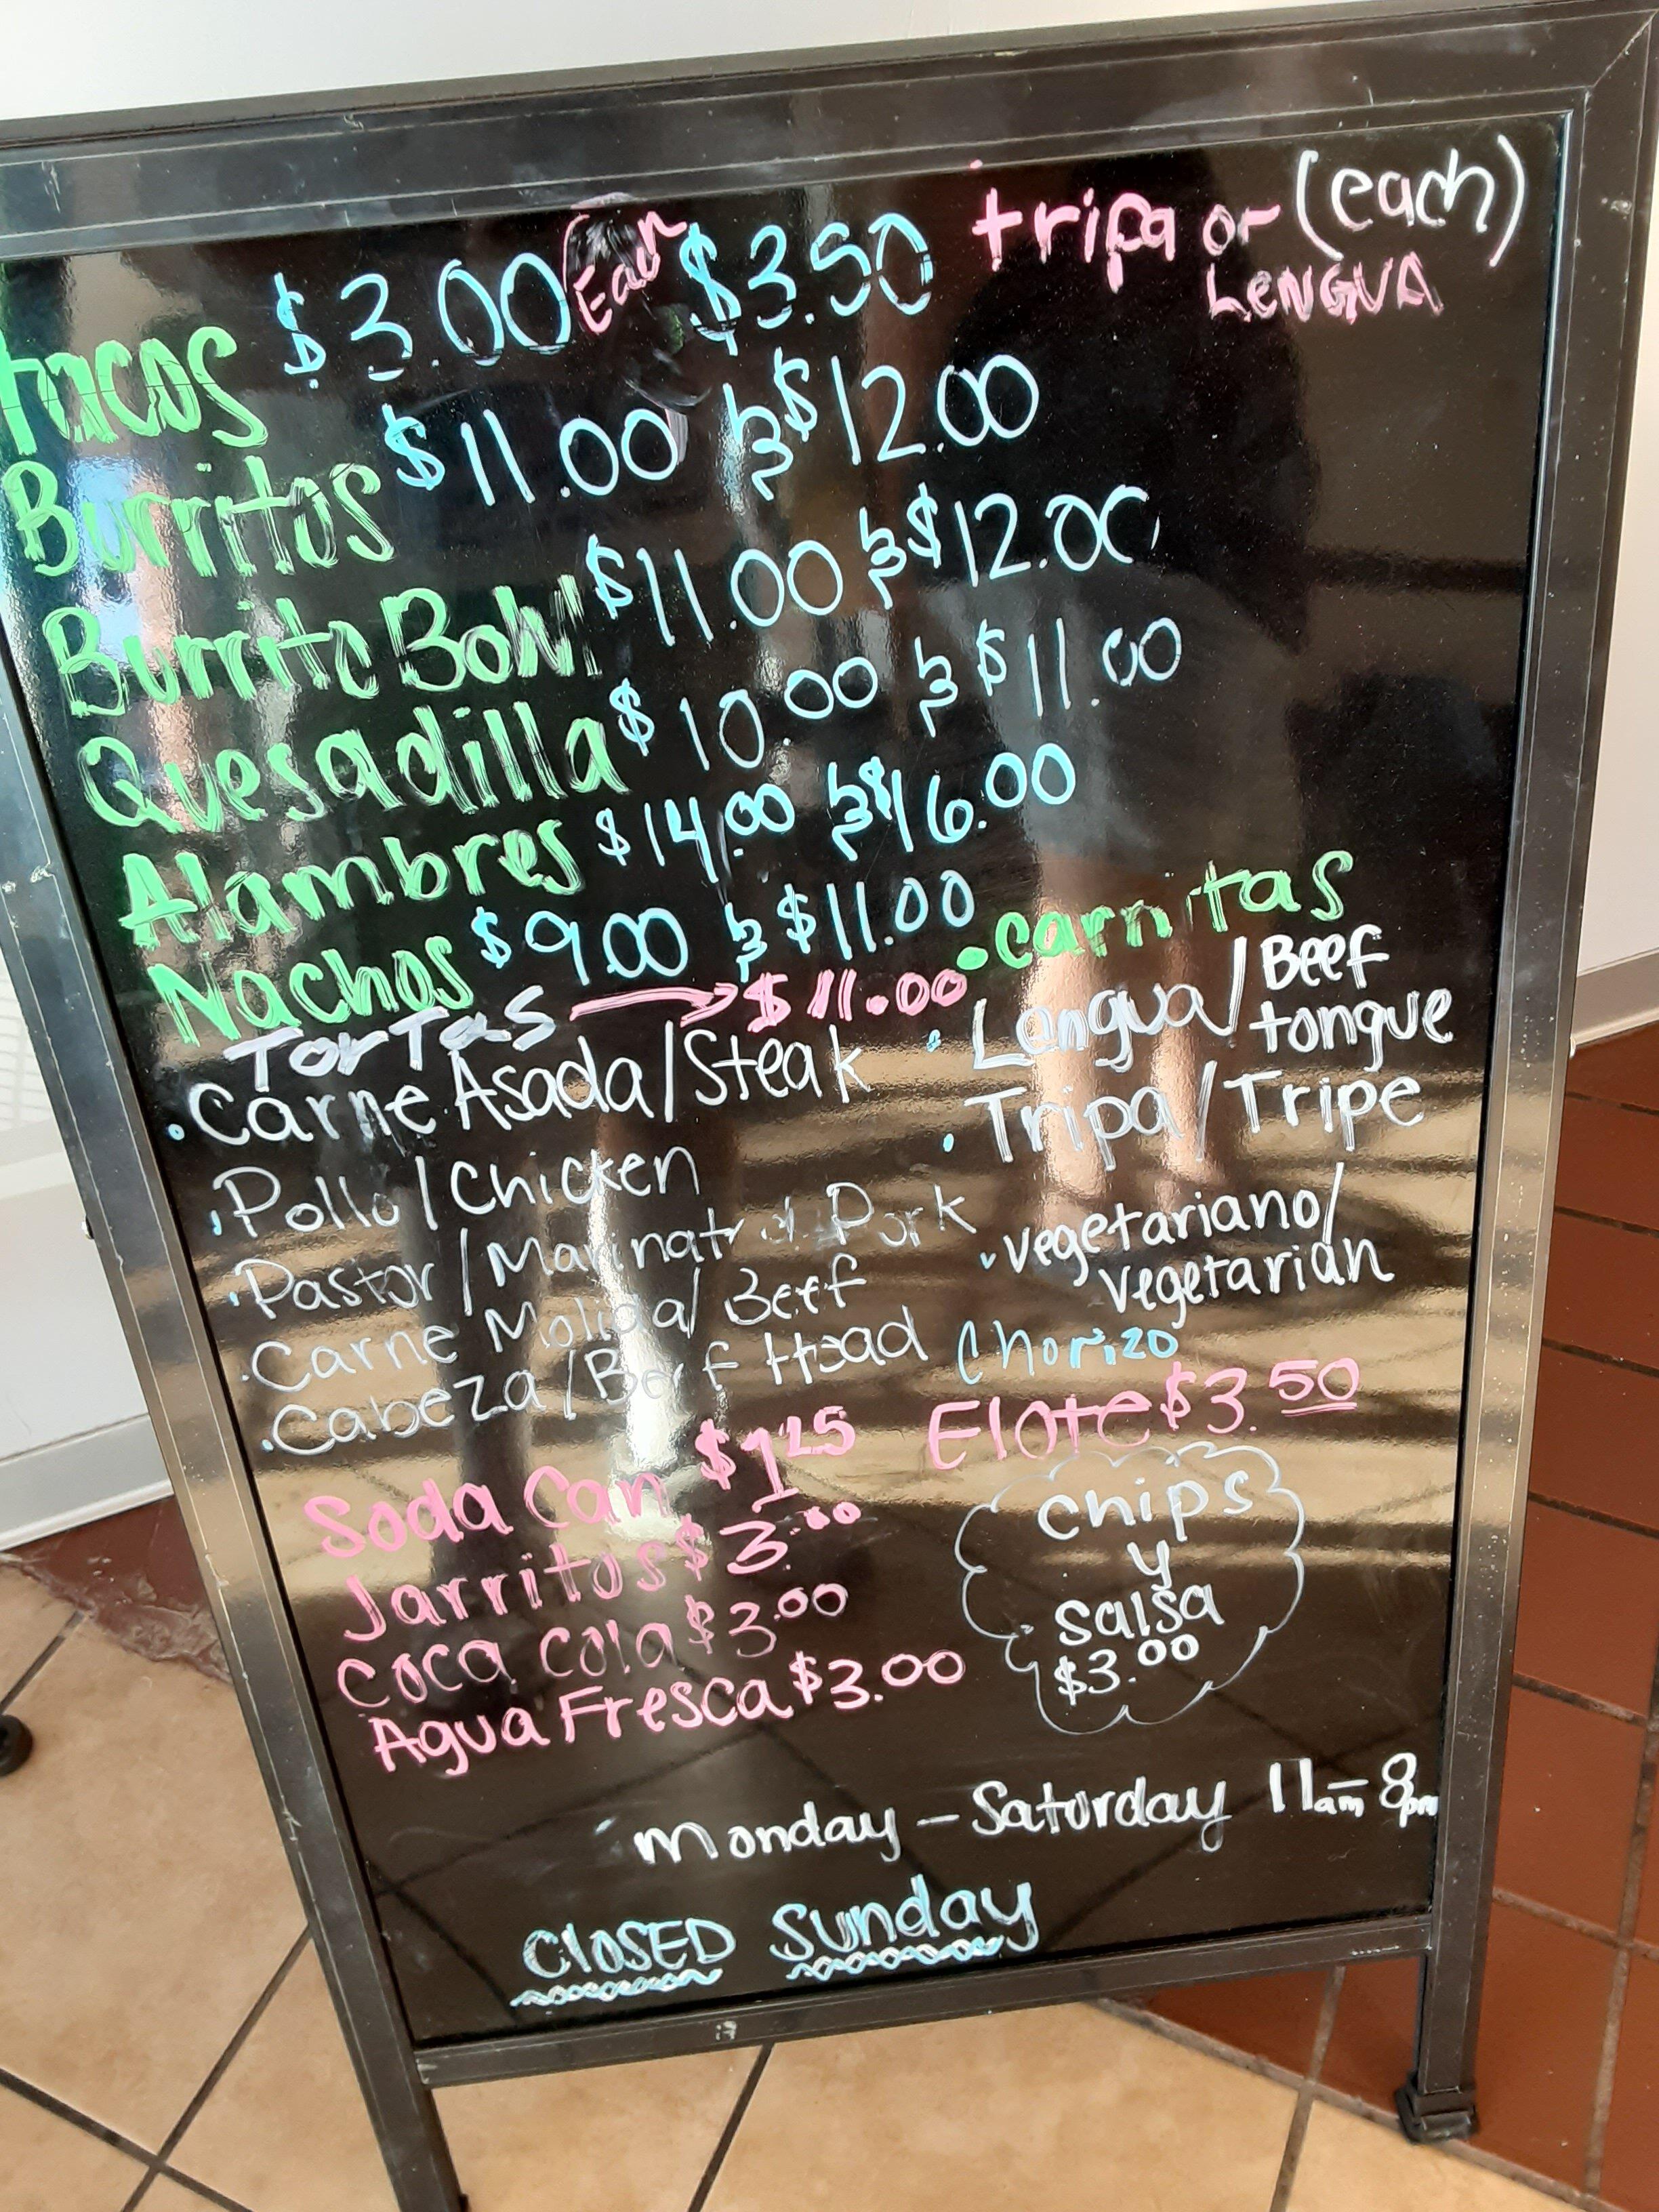 tacos $3.00 Each $3.50 tripa or (each)
LENGUA
Burritos $11.00 & $12.00
Burrito Bowl $11.00 & $12.00
Quesadilla $10.00 & $11.00
Alambres $14.00 & $16.00
Nachos $9.00 & $11.00
TorTas → $11.00
• Carne Asada/Steak
• Pollo/Chicken
• Pastor/Marinated Pork
• Carne Molida/Beef
• Cabeza/Beef Head
• carnitas
• Lengua/Beef
tongue
• Tripa/Tripe
• vegetariano/
vegetarian
Chorizo
Soda Can $1.25
Jarritos $3.00
Coca Cola $3.00
Agua Fresca $3.00
Elote $3.50
Chips
y
Salsa
$3.00
Monday - Saturday 11am - 8pm
CLOSED Sunday